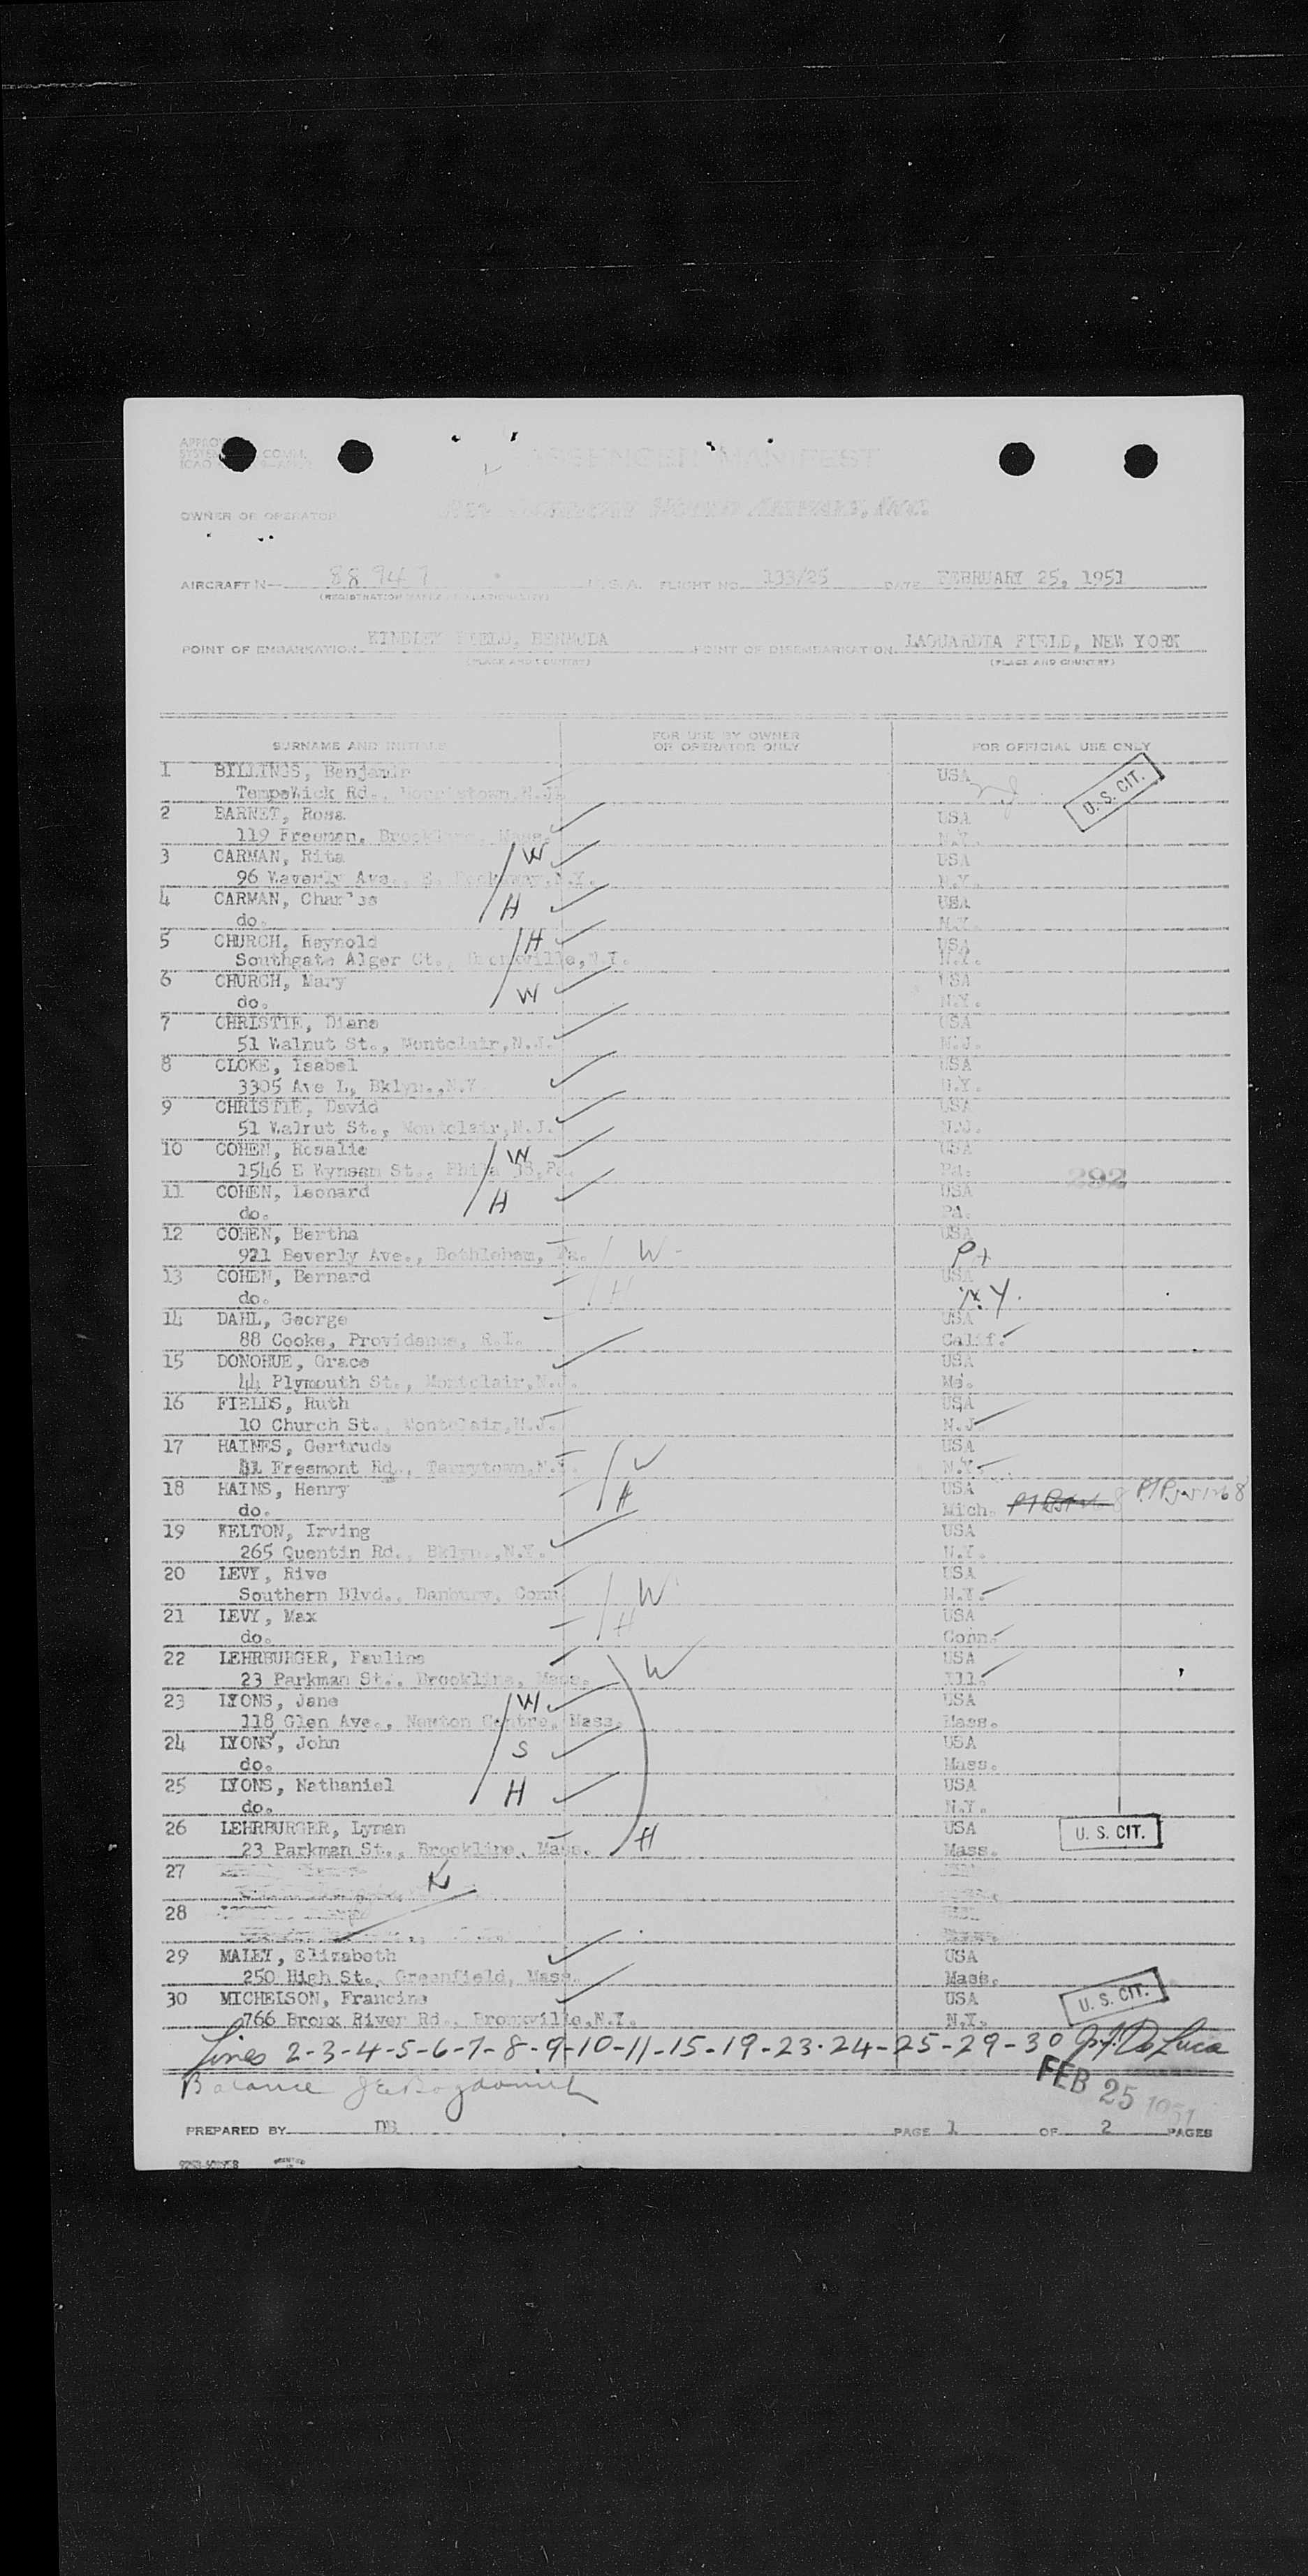 PASSENGER MANIFEST
OWNER OR OPERATOR
AIRCRAFT N— 88947 U.S.A. FLIGHT NO. 133/25 DATE FEBRUARY 25, 1951
POINT OF EMBARKATION KINDLEY FIELD, BERMUDA POINT OF DISEMBARKATION LAGUARDIA FIELD, NEW YORK
(PLACE AND COUNTRY) (PLACE AND COUNTRY)
SURNAME AND INITIALS FOR USE BY OWNER OR OPERATOR ONLY FOR OFFICIAL USE ONLY
1 BILLINGS, Benjamin USA U. S. CIT.
TempeWick Rd.,
2 BARNET, Rosa USA
119 Freeman, Brookline, Mass. N.Y.
3 CARMAN, Rita W USA
96 Waverly Ave., E. Rockaway, N.Y. N.Y.
4 CARMAN, Charles H USA
do. N.Y.
5 CHURCH, Reynold H USA
Southgate Alger Ct., Bronxville, N.Y. N.Y.
6 CHURCH, Mary USA
do. W N.Y.
7 CHRISTIE, Diane USA
51 Walnut St., Montclair, N.J. N.J.
8 CLOKE, Isabel USA
3305 Ave L, Bklyn., N.Y. N.Y.
9 CHRISTIE, David USA
51 Walnut St., Montclair, N.J. N.J.
10 COHEN, Rosalie W USA
1546 E Wynsam St., Phila 38, Pa. Pa. 292
11 COHEN, Leonard H USA
do. Pa.
12 COHEN, Bertha USA
921 Beverly Ave., Bethlehem, Pa. W
13 COHEN, Bernard USA
do. H N.Y.
14 DAHL, George USA
88 Cooke, Providence, R.I. Calif.
15 DONOHUE, Grace USA
44 Plymouth St., Montclair, N.J. Me.
16 FIELDS, Ruth USA
10 Church St., Montclair, N.J. N.J.
17 HAINES, Gertrude W USA
Freemont Rd., Tarrytown, N.Y. N.Y.
18 HAINS, Henry H USA
do. Mich.
19 KELTON, Irving USA
265 Quentin Rd., Bklyn., N.Y. N.Y.
20 LEVY, Rive USA
Southern Blvd., Danbury, Conn W N.Y.
21 LEVY, Max H USA
do. Conn.
22 LEHRBURGER, Pauline W USA
23 Parkman St., Brookline, Mass. Ill.
23 LYONS, Jane W USA
118 Glen Ave., Newton Centre, Mass. Mass.
24 LYONS, John S USA
do. Mass.
25 LYONS, Nathaniel H USA
do. N.Y.
26 LEHRBURGER, Lyman H USA U. S. CIT.
23 Parkman St., Brookline, Mass. Mass.
27
28
29 MALEY, Elizabeth USA
250 High St., Greenfield, Mass. Mass.
30 MICHELSON, Francine USA U. S. CIT.
766 Bronx River Rd., Bronxville, N.Y. N.Y.
Lines 2-3-4-5-6-7-8-9-10-11-15-19-23-24-25-29-30 De Luca
Balance FEB 25 1951
PREPARED BY DB PAGE 1 OF 2 PAGES